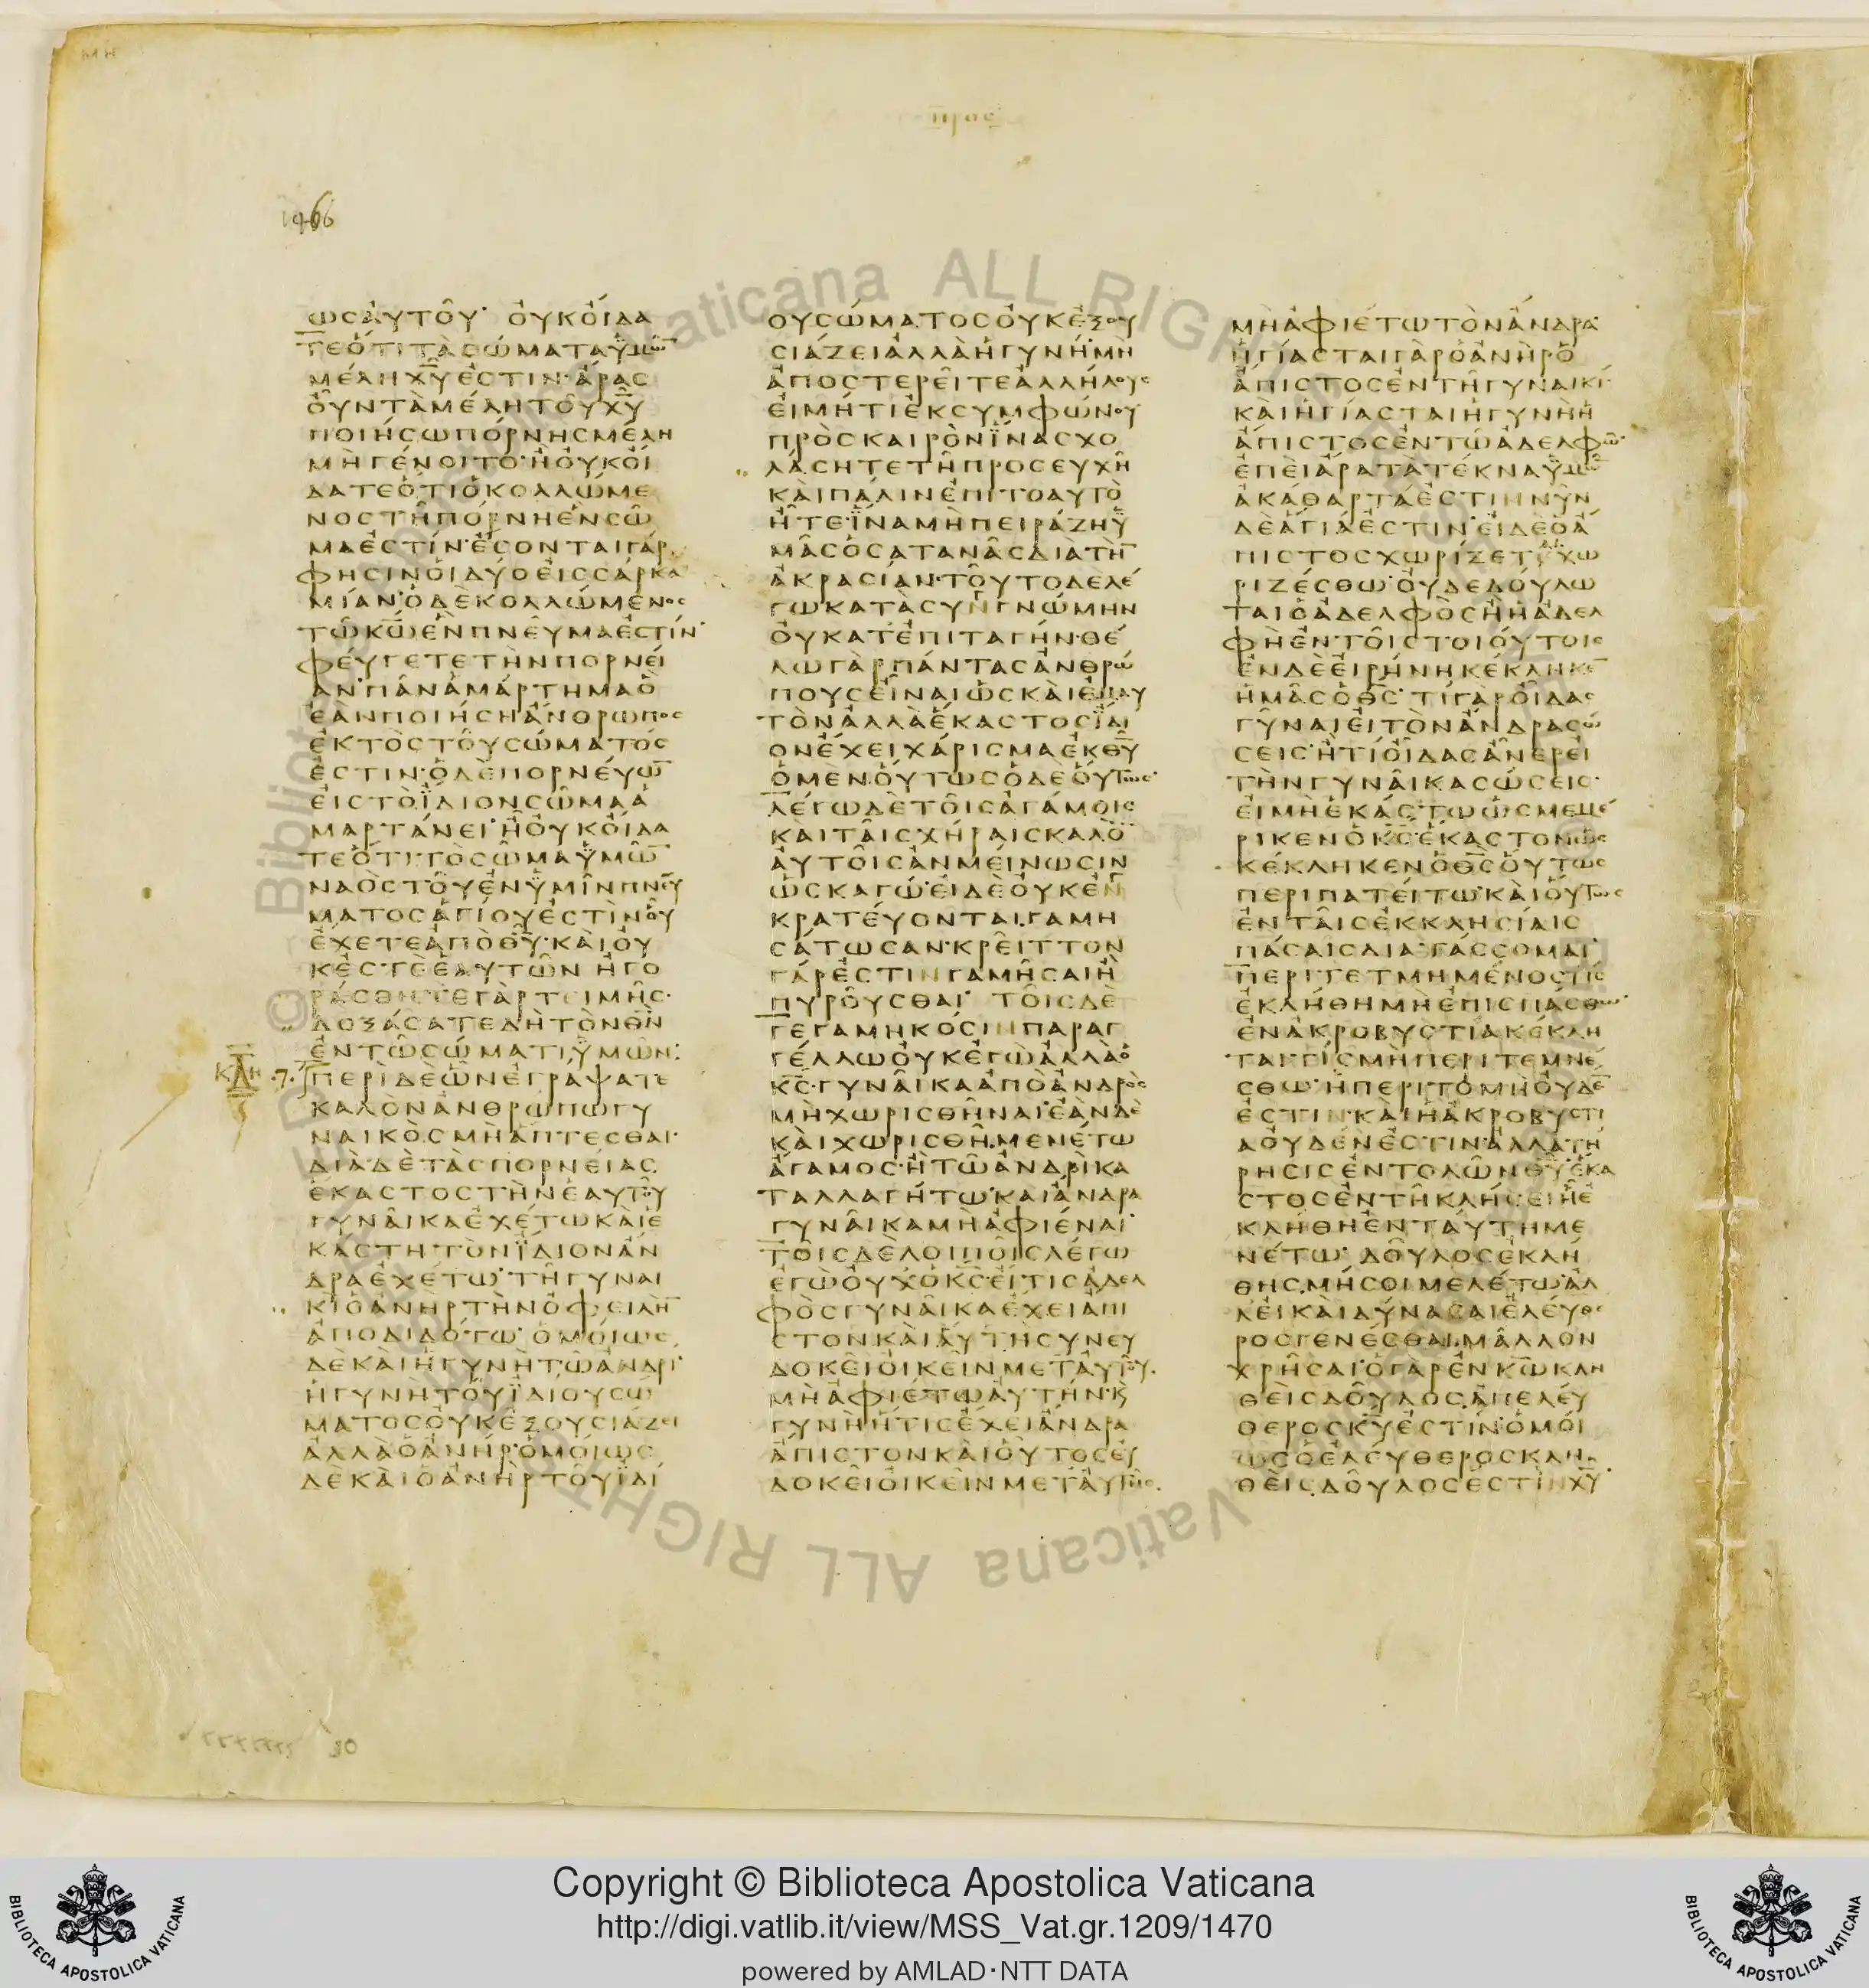 ΜΗ
προς
1466
ωσαυτου· ουκοιδα
τεοτιτασωματαϋμῶ̅
μεληχ̅υ̅εστιν·αρας
ουνταμελητουχ̅υ̅
ποιησωπορνησμελη
μηγενοιτο·ηουκοι
δατεοτιοκολλωμε
νοστηπορνηενσω
μαεστιν·εσονταιγαρ
φησινοιδυοεισσαρκα
μιαν·οδεκολλωμενος
τωκ̅ω̅ενπνευμαεστιν·
φευγετετηνπορνει
αν·παναμαρτημαο
εανποιησηανθρωπος
εκτοστουσωματος
εστιν·οδεπορνευω̅
ειστοϊδιονσωμαα
μαρτανει·ηουκοιδα
τεοτιτοσωμαϋμω̅
ναοστουενϋμινπνευ
ματοσαγιουεστινου
εχετεαποθ̅υ̅·καιου
κεστεεαυτων ηγο
ρασθητεγαρτειμησ·
δοξασατεδητονθ̅ν̅
εντωσωματιϋμων:
ΚΔη .7. περιδεωνεγραψατε
καλονανθρωπωγυ
ναικοσμηαπτεσθαι·
διαδετασπορνειας
εκαστοστηνεαυτου
γυναικαεχετωκαιε
καστητονϊδιοναν
δραεχετω·τηγυναι
κιοανηρτηνοφειλη̅
αποδιδοτω· ομοιως
δεκαιηγυνητωανδρι·
ηγυνητουϊδιουσω
ματοσουκεξουσιαζει
αλλαοανηρ·ομοιως
δεκαιοανηρτουϊδι
ουσωματοσουκεξου
σιαζειαλλαηγυνη·μη
αποστερειτεαλληλους
ειμητιεκσυμφωνου
προσκαιρονϊνασχο
λασητετηπροσευχη
καιπαλινεπιτοαυτο
ητε·ϊναμηπειραζηϋ
μασοσαταναςδιατη̅
ακρασιαν·τουτοδελε
γωκατασυνγνωμην
ουκατεπιταγην·θε
λωγαρπαντασανθρω
πουσειναιωσκαιεμαυ
τοναλλαεκαστοσϊδι
ονεχειχαρισμαεκθ̅υ̅
ομεν·ουτωσοδεουτως·
λεγωδετοισαγαμοις
καιταισχηραισκαλο̅
αυτοισανμεινωσιν
ωσκαγω·ειδεουκεν
κρατευονται·γαμη
σατωσαν·κρειττον
γαρεστινγαμησαιη
πυρουσθαι· τοισδε
γεγαμηκοσινπαραγ
γελλωουκεγωαλλαο
κ̅ς̅·γυναικααποανδρος
μηχωρισθηναι·εανδε
καιχωρισθη·μενετω
αγαμος·ητωανδρικα
ταλλαγητω·καιανδρα
γυναικαμηαφιεναι·
τοισδελοιποισλεγω
εγωουχοκ̅ς̅·ειτισαδελ
φοσγυναικαεχειαπι
στονκαιαυτησυνευ
δοκειοικεινμεταυτου.
μηαφιετωαυτην·κ̣
γυνηητισεχειανδρα
απιστονκαιουτοσευ
δοκειοικεινμεταυτης.
μηαφιετωτονανδρα·
ηγιασταιγαροανηρο
απιστοσεντηγυναικι·
καιηγιασταιηγυνηη
απιστοσεντωαδελφω·
επειαρατατεκναϋμω̅
ακαθαρταεστιννυν
δεαγιαεστιν·ειδεοα
πιστοσχωριζεταιχω
ριζεσθω·ουδεδουλω
ταιοαδελφοσηηαδελ
φηεντοιστοιουτοις
ενδεειρηνηκεκληκε̅
ημασοθ̅ς̅· τιγαροιδας
γυναιειτονανδρασω
σεις·ητιοιδασανερει
τηνγυναικασωσεις·
ειμηεκαστωωσμεμε
ρικενοκ̅ς̅·εκαστονως
κεκληκενοθ̅ς̅ουτως
περιπατειτω·καιουτως
ενταισεκκλησιαις
πασαισδιατασσομαι·
περιτετμημενοστις
εκληθημηεπισπασθω·
ενακροβυστιακεκλη
ταιτισμηπεριτεμνε
σθω·ηπεριτομηουδε̅
εστιν·καιηακροβυστι
αουδενεστιν·αλλατη
ρησισεντολωνθ̅υ̅·εκα
στοσεντηκλησειηε
κληθηενταυτημε
νετω· δουλοσεκλη
θης·μησοιμελετω·αλ
λεικαιδυνασαιελευθε
ροσγενεσθαι·μαλλον
χρησαι·ογαρενκ̅ω̅κλη
θεισδουλος·απελευ
θεροσκ̅υ̅εστιν·ομοι
ωσοελευθεροσκλη
θεισ·δουλοσεστινχ̅υ̅·
30
Copyright © Biblioteca Apostolica Vaticana
http://digi.vatlib.it/view/MSS_Vat.gr.1209/1470
powered by AMLAD·NTT DATA
BIBLIOTECA APOSTOLICA VATICANA
BIBLIOTECA APOSTOLICA VATICANA